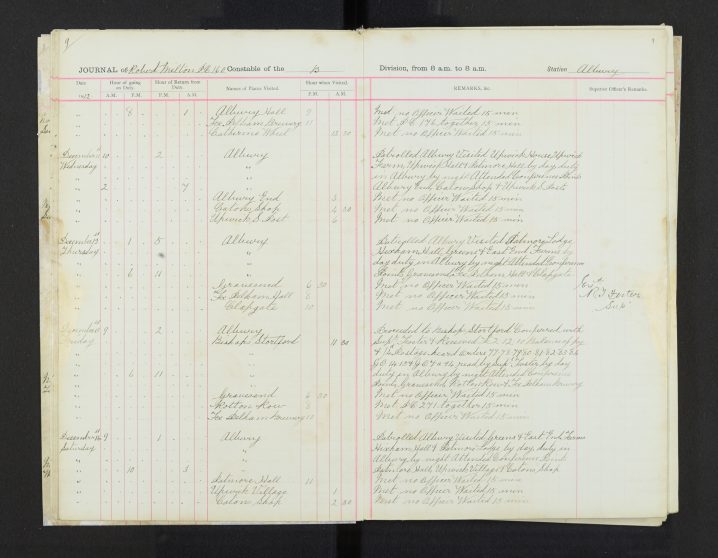 9
JOURNAL of Robert Milton P.C. 160 Constable of the B Division, from 8 a.m. to 8 a.m. Station Albury
Date Hour of going on Duty. Hour of Return from Duty. Names of Places Visited. Hour when Visited. REMARKS, &c. Superior Officer's Remarks.
1912 A.M. P.M. P.M. A.M. P.M. A.M.
" 8 1 Albury Hall 9 Met no Officer Waited 15 men
" Fx Pelham Brewery 11 Met P.C. 176 together 15 men
" Catherine Wheel 12 30 Met no Officer Waited 15 men
December 10 2 Albury Patrolled Albury Visited Upwick House Upwick
Wednesday " Farm Upwick Hall & Patmore Hall by day, duty
" " in Albury by night Attended Conference
" 2 7 Albury End, Catons Shop & Upwick S. Post
" Albury End 3 Met no Officer Waited 15 men
" Catons Shop 4 30 Met no Officer Waited 15 men
" Upwick S. Post 6 Met no Officer Waited 15 men
December 1 5 Albury Patrolled Albury Visited Patmore Lodge
Thursday " Hixham Hall, Greens & East End Farms by
" " day duty in Albury by night Attended Conference
" 6 11 Points Gravesend Fx Pelham Hall & Clapgate
" Gravesend 6 30 Met no Officer Waited 15 men
" Fx Pelham Hall 8 Met no Officer Waited 15 men
" Clapgate 10 Met no Officer Waited 15 men
Supt
December 9 2 Albury Proceeded to Bishop Stortford Conferred with
Friday Bishops Stortford 11 30 Supt Foster & Received
" by day
" 6 11 duty in Albury by night Attended Conference
" Points, Gravesend Rotton Row & Fx Pelham Brewery
" Gravesend 6 30 Met no Officer Waited 15 men
" Rotton Row 8 Met P.C. 271 together 15 men
" Fx Pelham Brewery 10 Met no Officer Waited 15 men
December 9 1 Albury Patrolled Albury Visited Greens & East End Farms
Saturday " Hixham Hall & Patmore Lodge by day, duty in
" " Albury by night Attended Conference Points
" 10 3 Patmore Hall, Upwick Village & Catons Shop
" Patmore Hall 11 Met no Officer Waited 15 men
" Upwick Village 1 Met no Officer Waited 15 men
" Catons Shop 2 30 Met no Officer Waited 15 men